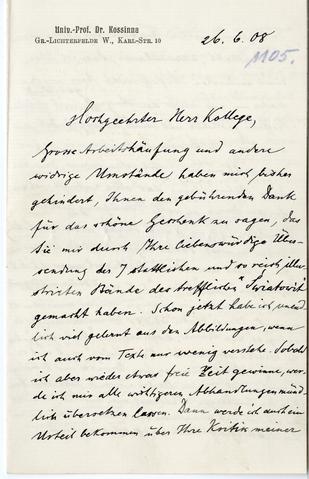 Univ.-Prof. Dr. Kossinna
Gr.-Lichterfelde W., Karl-Str. 10
26. 6. 08
1105.
Hochgeehrter Herr Kollege,
Grosse Arbeitshäufung und andere
widrige Umstände haben mich bisher
gehindert, Ihnen den gebührenden Dank
für das schöne Geschenk zu sagen, das
Sie mir durch Ihre liebenswürdige Über-
sendung der 7 stattlichen und so reich illu-
strirten Bände des trefflichen "Światowit"
gemacht haben. Schon jetzt habe ich unend-
lich viel gelernt aus den Abbildungen, wenn
ich auch vom Texte nur wenig verstehe. Sobald
ich aber wieder etwas freie Zeit gewinne, wer-
de ich mir alle wichtigeren Abhandlungen münd-
lich übersetzen lassen. Dann werde ich auch ein
Urteil bekommen über Ihre Kritik meiner